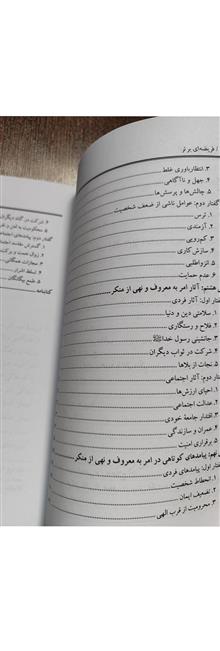 / فریضه‌ای برتر
۳. انتظارباوری غلط
۴. جهل و ناآگاهی
۵. چالش‌ها و پرسش‌ها
گفتار دوم: عوامل ناشی از ضعف شخصیت
۱. ترس
۲. آزمندی
۳. کم‌رویی
۴. سازش‌کاری
۵. انزواطلبی
۶. عدم حمایت
هشتم: آثار امر به معروف و نهی از منکر
گفتار اول: آثار فردی
۱. سلامتی دین و دنیا
۲. فلاح و رستگاری
۳. جانشینی رسول خدا ﷺ
۴. شرکت در ثواب دیگران
۵. نجات از بلاها
گفتار دوم: آثار اجتماعی
۱. احیای ارزش‌ها
۲. عدالت اجتماعی
۳. اقتدار جامعهٔ خودی
۴. عمران و سازندگی
۵. برقراری امنیت
نهم: پیامدهای کوتاهی در امر به معروف و نهی از منکر
گفتار اول: پیامدهای فردی
۱. انحطاط شخصیت
۲. تضعیف ایمان
۳. محرومیت از قرب الهی
۴. شرکت در گناه دیگران
۵. محکومیت به لعن و
گفتار دوم: پیامدهای اجتماعی
۱. گسترش
۲. زوال نعمت و برکت
۳. مجازات همگانی
۴. تسلط اشرار
۵. طمع بیگانگان
کتابنامه